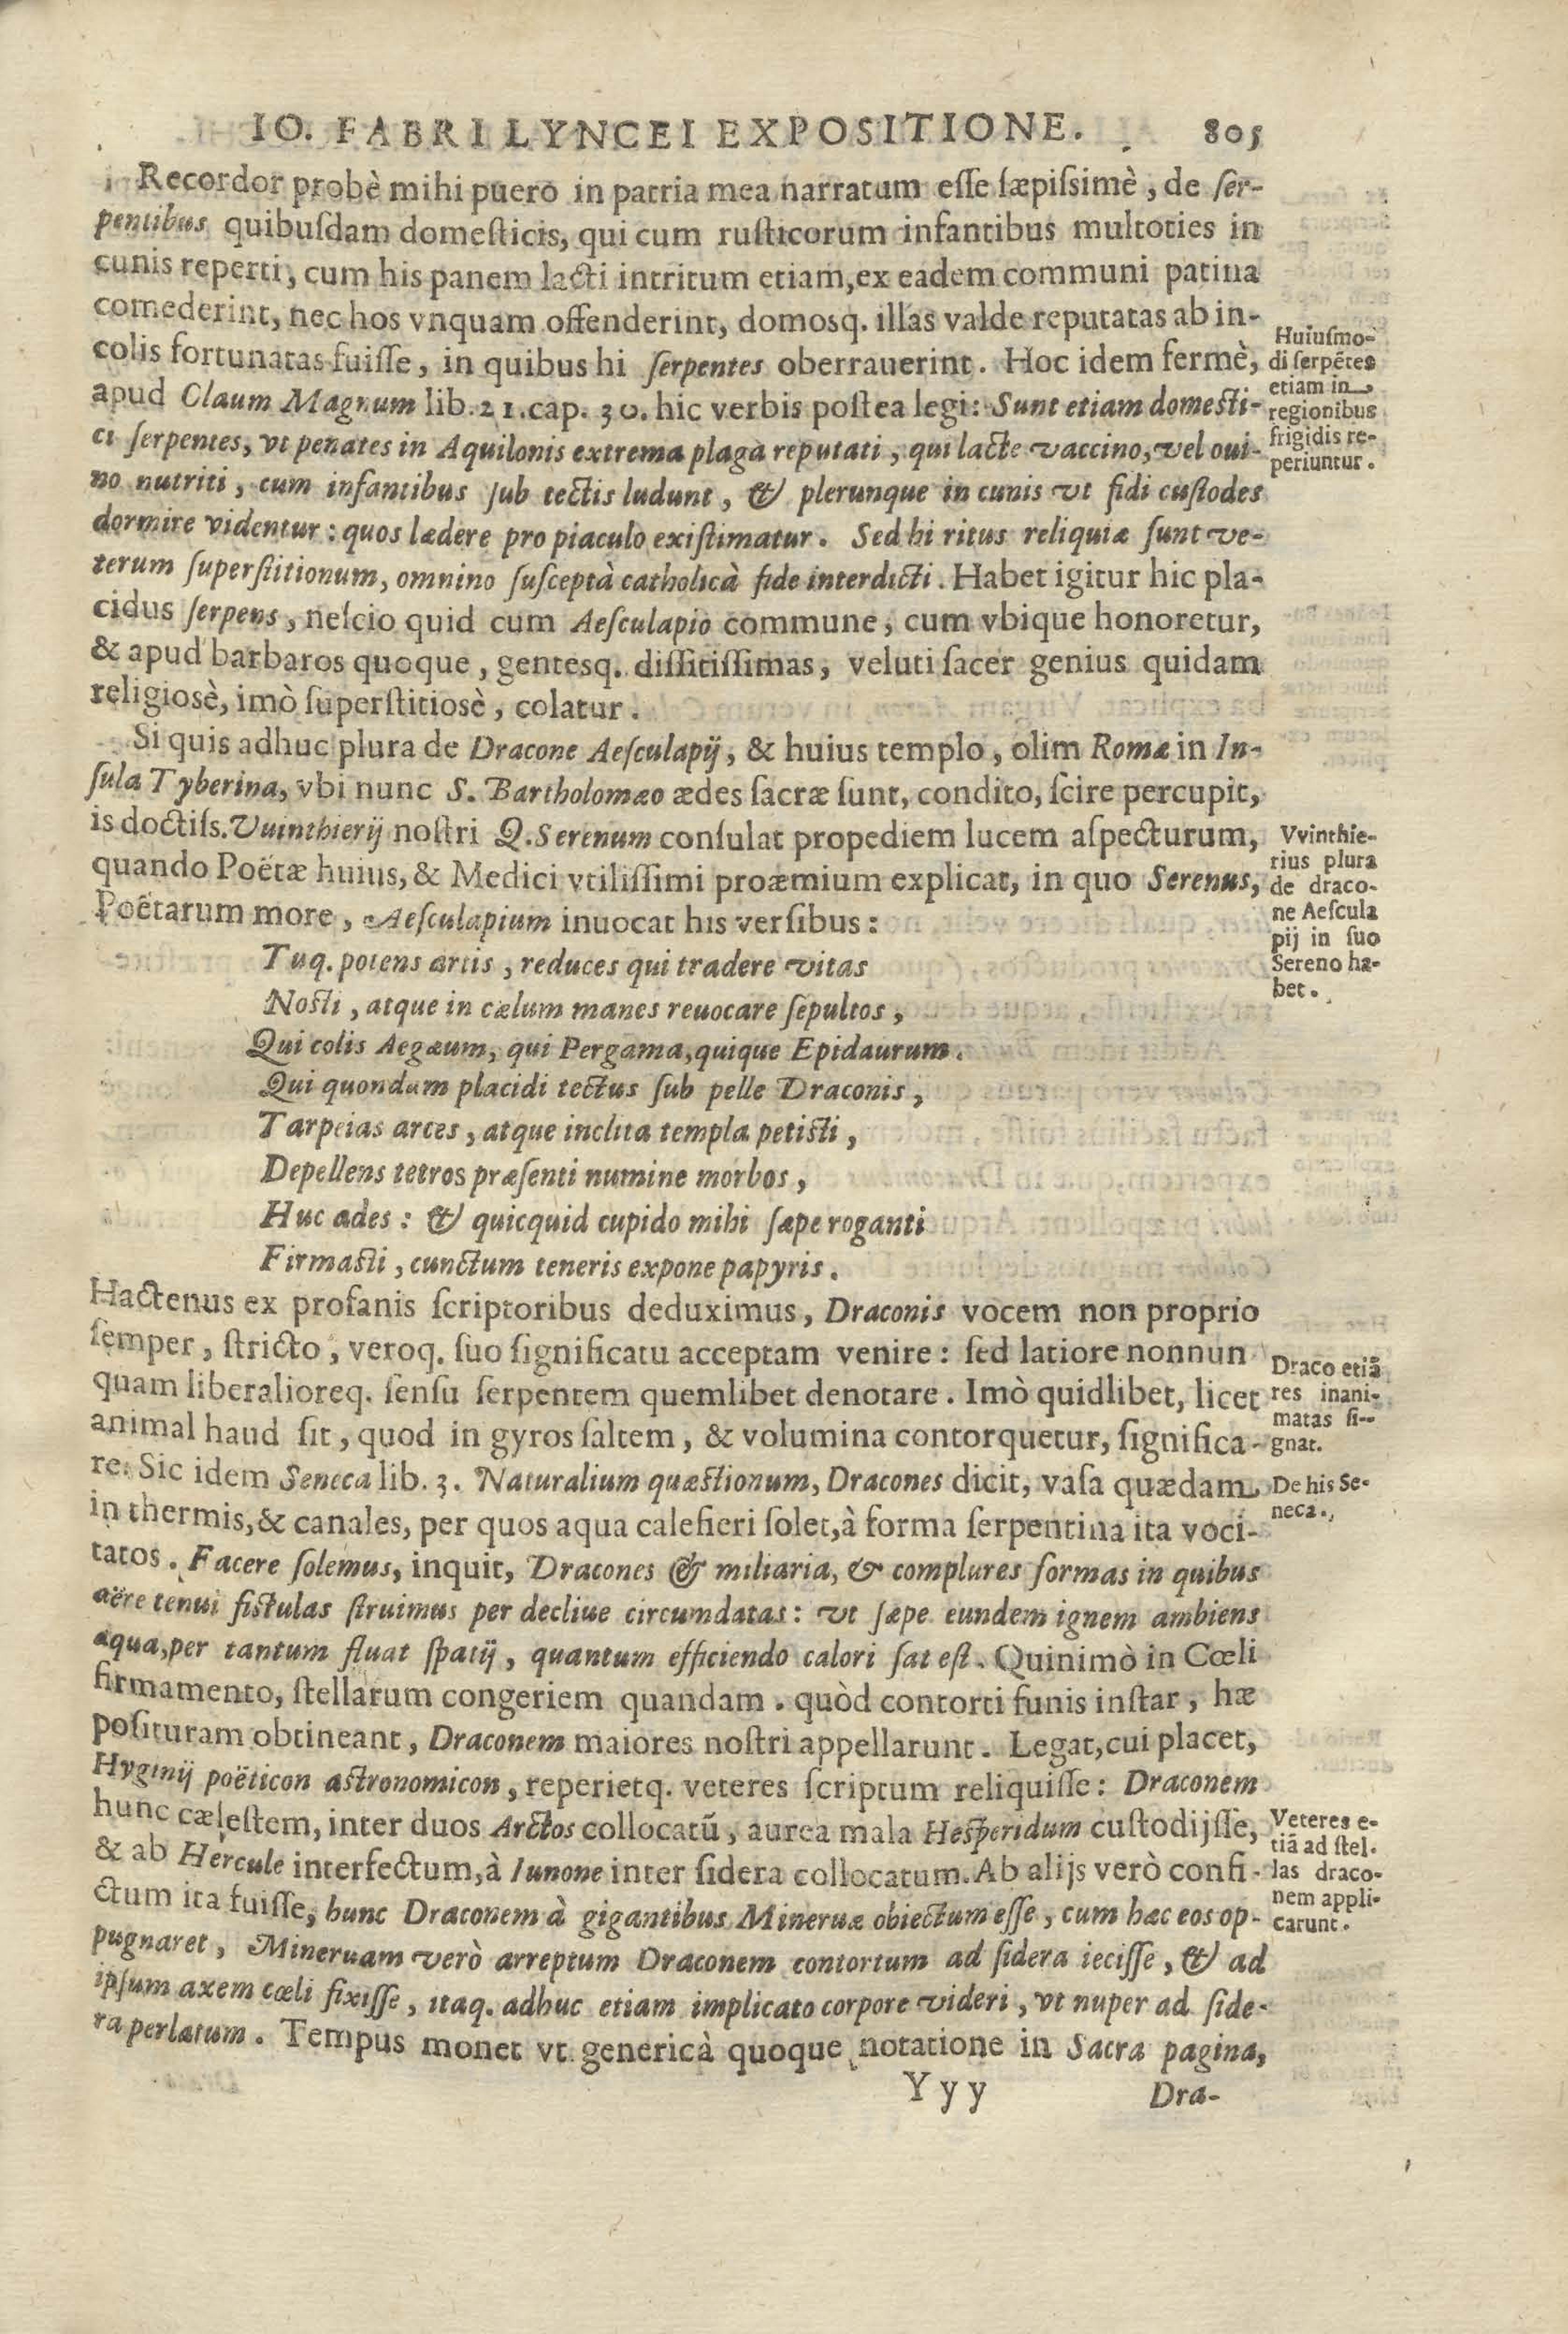 IO. FABRI LYNCEI EXPOSITIONE. 805
Recordor probè mihi puero in patria mea narratum esse sæpissimè, de ser-
pentibus quibusdam domesticis, qui cum rusticorum infantibus multoties in
cunis reperti, cum his panem lacti intritum etiam, ex eadem communi patina
comederint, nec hos vnquam offenderint, domosq. illas valde reputatas ab in-
colis fortunatas fuisse, in quibus hi serpentes oberrauerint. Hoc idem fermè,
apud Claum Magnum lib. 21. cap. 30. hic verbis postea legi: Sunt etiam domesti-
ci serpentes, vt penates in Aquilonis extrema plaga reputati, qui lacte vaccino, vel oui-
no nutriti, cum infantibus sub tectis ludunt, & plerunque in cunis vt fidi custodes
dormire videntur: quos lædere pro piaculo existimatur. Sed hi ritus reliquiæ sunt ve-
terum superstitionum, omnino susceptà catholicà fide interdicti. Habet igitur hic pla-
cidus serpens, nescio quid cum Aesculapio commune, cum vbique honoretur,
& apud barbaros quoque, gentesq. dissitissimas, veluti sacer genius quidam
religiosè, imò superstitiosè, colatur.
Huiusmo-
di serpẽtes
etiam in
regionibus
frigidis re-
periuntur.
Si quis adhuc plura de Dracone Aesculapij, & huius templo, olim Romæ in In-
sula Tyberina, vbi nunc S. Bartholomæo ædes sacræ sunt, condito, scire percupit,
is doctiss. Vuinthierij nostri Q. Serenum consulat propediem lucem aspecturum,
quando Poëtæ huius, & Medici vtilissimi proæmium explicat, in quo Serenus,
Poëtarum more, Aesculapium inuocat his versibus:
Vvinthie-
rius plura
de draco-
ne Aescula
pij in suo
Sereno ha-
bet.
Tuq. potens artis, reduces qui tradere vitas
Nosti, atque in cælum manes reuocare sepultos,
Qui colis Aegæum, qui Pergama, quique Epidaurum.
Qui quondam placidi tectus sub pelle Draconis,
Tarpeias arces, atque inclita templa petisti,
Depellens tetros præsenti numine morbos,
Huc ades: & quicquid cupido mihi sæpe roganti
Firmasti, cunctum teneris expone papyris.
Hactenus ex profanis scriptoribus deduximus, Draconis vocem non proprio
semper, stricto, veroq. suo significatu acceptam venire: sed latiore nonnun
quam liberalioreq. sensu serpentem quemlibet denotare. Imò quidlibet, licet
animal haud sit, quod in gyros saltem, & volumina contorquetur, significa-
re. Sic idem Seneca lib. 3. Naturalium quæstionum, Dracones dicit, vasa quædam
in thermis, & canales, per quos aqua calefieri solet, à forma serpentina ita voci-
tatos. Facere solemus, inquit, Dracones & miliaria, & complures formas in quibus
aëre tenui fistulas struimus per decliue circumdatas: vt sæpe eundem ignem ambiens
aqua, per tantum fluat spatij, quantum efficiendo calori sat est. Quinimò in Cœli
firmamento, stellarum congeriem quandam. quòd contorti funis instar, hæ
posituram obtineant, Draconem maiores nostri appellarunt. Legat, cui placet,
Hyginij poëticon astronomicon, reperietq. veteres scriptum reliquisse: Draconem
hunc cælestem, inter duos Arctos collocatũ, aurea mala Hesperidum custodijsse,
& ab Hercule interfectum, à Iunone inter sidera collocatum. Ab alijs verò confi-
ctum ita fuisse, hunc Draconem à gigantibus Mineruæ obiectum esse, cum hæc eos op-
pugnaret, Mineruam verò arreptum Draconem contortum ad sidera iecisse, & ad
ipsum axem cœli fixisse, itaq. adhuc etiam implicato corpore videri, vt nuper ad side-
ra perlatum. Tempus monet vt genericà quoque notatione in Sacra pagina,
Draco etiã
res inani-
matas si-
gnat.
De his Se-
neca.
Veteres e-
tiã ad stel-
las draco-
nem appli-
carunt.
Yyy Dra-